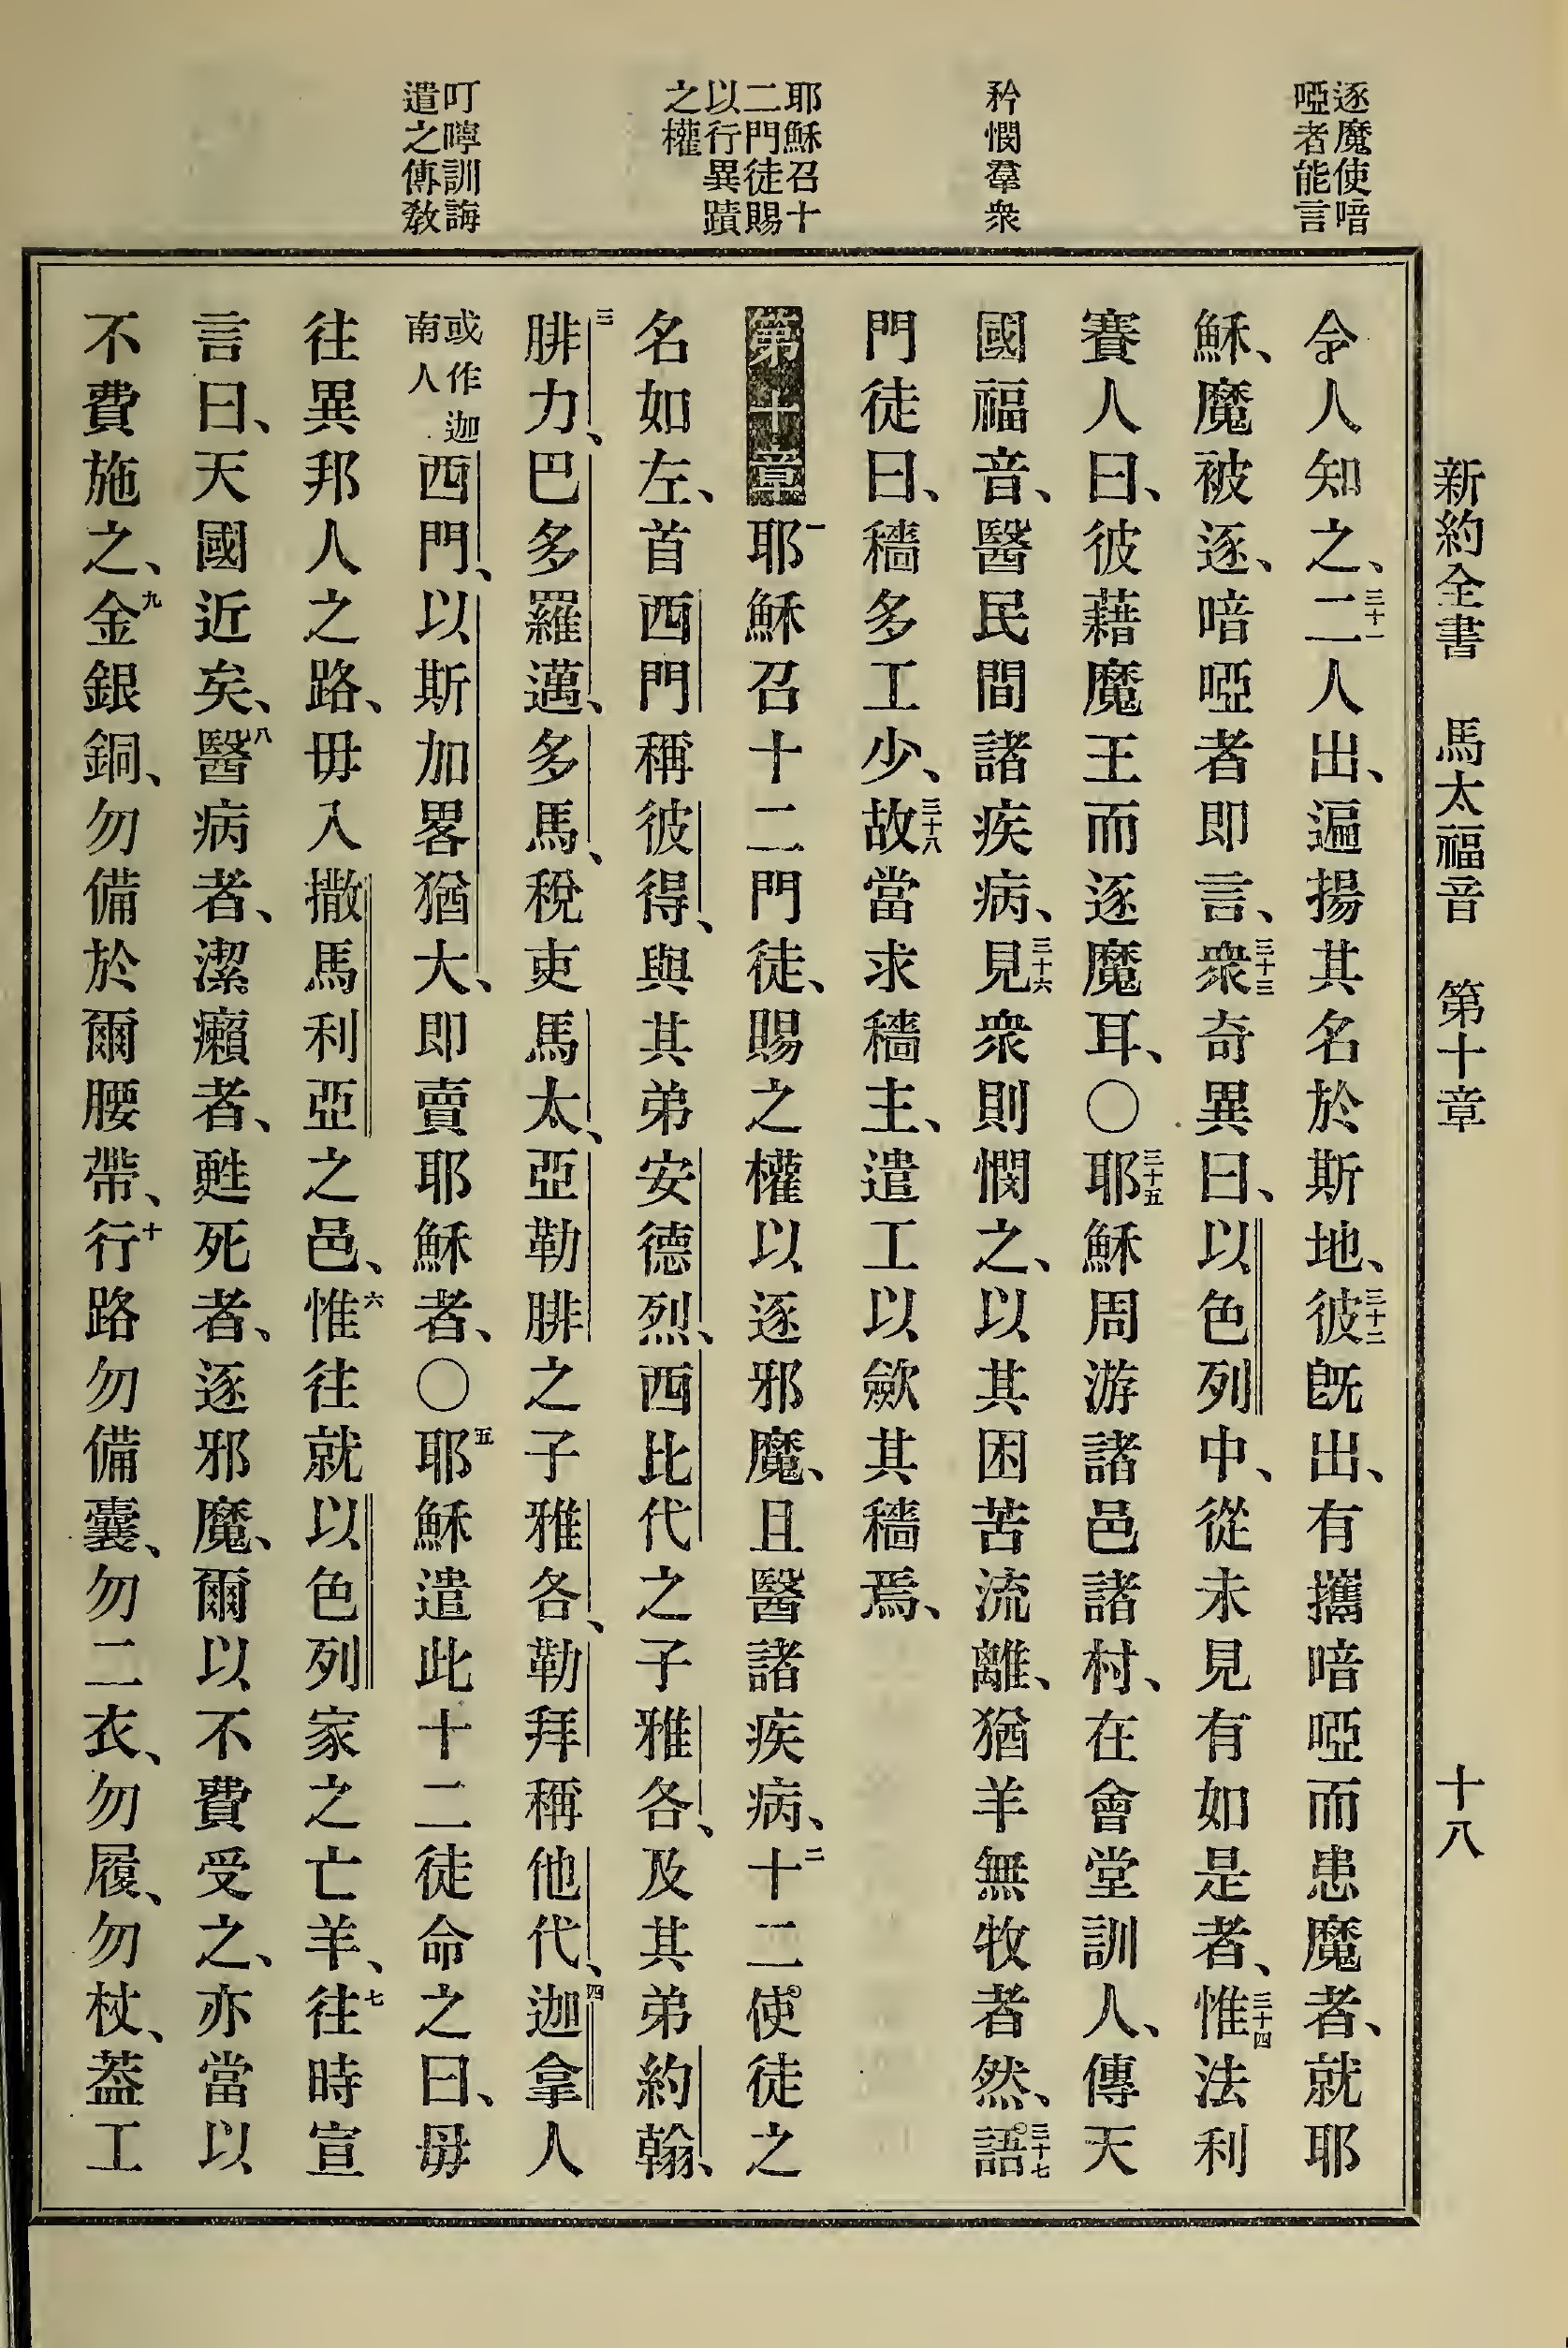 新約全書 馬太福音 第十章 十八
逐魔使喑
啞者能言
矜憫羣衆
耶穌召十
二門徒賜
以行異蹟
之權
叮嚀訓誨
遣之傳敎
令人知之、三十一二人出、遍揚其名於斯地、三十二彼旣出、有攜喑啞而患魔者、就耶
穌、魔被逐、喑啞者即言、三十三衆奇異曰、以色列中、從未見有如是者、三十四惟法利
賽人曰、彼藉魔王而逐魔耳、〇三十五耶穌周游諸邑諸村、在會堂訓人、傳天
國福音、醫民間諸疾病、三十六見衆則憫之、以其困苦流離、猶羊無牧者然、三十七語
門徒曰、穡多工少、三十八故當求穡主、遣工以歛其穡焉、
第十章 一耶穌召十二門徒、賜之權以逐邪魔、且醫諸疾病、二十二使徒之
名如左、首西門稱彼得、與其弟安德烈、西比代之子雅各、及其弟約翰、
三腓力、巴多羅邁、多馬、稅吏馬太、亞勒腓之子雅各、勒拜稱他代、四迦拿人
或作迦南人西門、以斯加畧猶大、即賣耶穌者、〇五耶穌遣此十二徒命之曰、毋
往異邦人之路、毋入撒馬利亞之邑、六惟往就以色列家之亡羊、七往時宣
言曰、天國近矣、八醫病者、潔癩者、甦死者、逐邪魔、爾以不費受之、亦當以
不費施之、九金銀銅、勿備於爾腰帶、十行路勿備囊、勿二衣、勿履、勿杖、蓋工